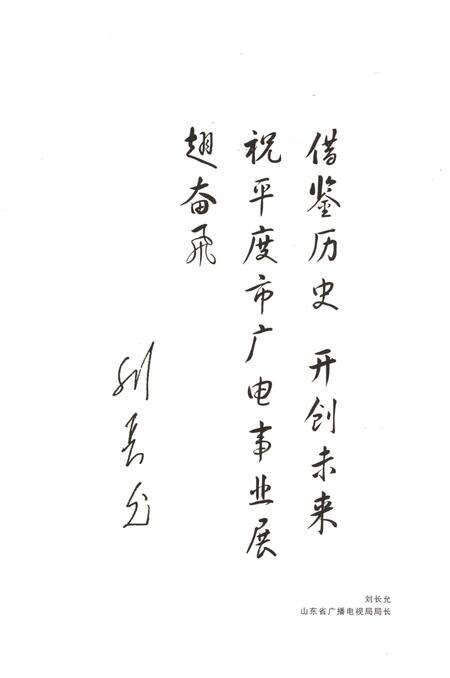 借鉴历史 开创未来
祝平度市广电事业展
翅奋飞
刘长允
刘长允
山东省广播电视局局长